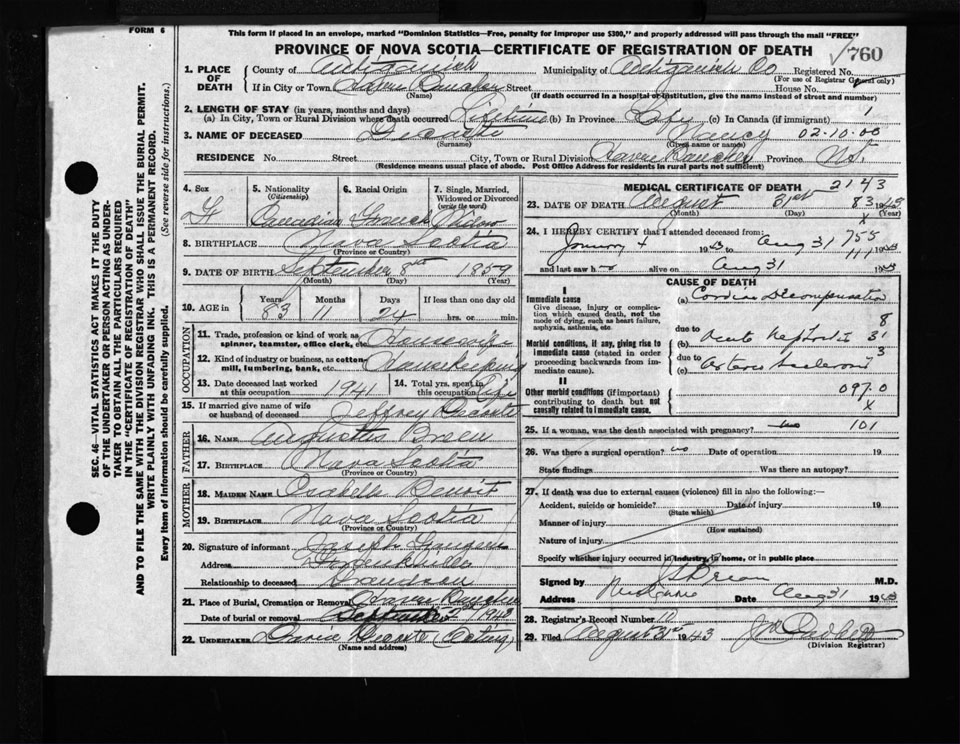 FORM 6
This form if placed in an envelope, marked "Dominion Statistics—Free, penalty for improper use $300," and properly addressed will pass through the mail "FREE"
PROVINCE OF NOVA SCOTIA—CERTIFICATE OF REGISTRATION OF DEATH
760
1. PLACE OF DEATH
County of Antigonish Municipality of Antigonish Co Registered No.
(For use of Registrar General only)
If in City or Town Havre Boucher Street House No.
(Name) (If death occurred in a hospital or institution, give the name instead of street and number)
2. LENGTH OF STAY (in years, months and days)
(a) In City, Town or Rural Division where death occurred Lifetime (b) In Province Life (c) In Canada (if immigrant) 1
3. NAME OF DECEASED Decoste Nancy 02-10-00
(Surname) (Given name or names)
RESIDENCE No. Street City, Town or Rural Division Havre Boucher Province N.S.
(Residence means usual place of abode. Post Office Address for residents in rural parts not sufficient)
4. Sex F
5. Nationality (Citizenship) Canadian
6. Racial Origin French
7. Single, Married, Widowed or Divorced (write the word) Widow
8. BIRTHPLACE Nova Scotia
(Province or Country)
9. DATE OF BIRTH September 8th 1859
(Month) (Day) (Year)
10. AGE in Years 83 Months 11 Days 24 If less than one day hrs. or min.
OCCUPATION
11. Trade, profession or kind of work as spinner, teamster, office clerk, etc. Housewife
12. Kind of industry or business, as cotton mill, lumbering, bank, etc. Housekeeping
13. Date deceased last worked at this occupation 1941
14. Total yrs. spent in this occupation
15. If married give name of wife or husband of deceased Jeffrey Decoste
FATHER
16. NAME Augustus Breen
17. BIRTHPLACE Nova Scotia
(Province or Country)
MOTHER
18. MAIDEN NAME Isabelle Benoit
19. BIRTHPLACE Nova Scotia
(Province or Country)
20. Signature of informant Joseph
Address Frankville
Relationship to deceased Grandson
21. Place of Burial, Cremation or Removal Havre Boucher
Date of burial or removal September 2nd 1943
22. UNDERTAKER Decoste (Acting)
(Name and address)
MEDICAL CERTIFICATE OF DEATH 2143
23. DATE OF DEATH August 31st 1943
(Month) (Day) (Year)
83
X
24. I HEREBY CERTIFY that I attended deceased from:
January 1943 to Aug 31 1943
755
111
and last saw h alive on Aug 31 1943
CAUSE OF DEATH
I
Immediate cause
Give disease, injury or complication which caused death, not the mode of dying, such as heart failure, asphyxia, asthenia, etc
(a) Cardiac Decompensation
8
Morbid conditions, if any, giving rise to immediate cause (stated in order proceeding backwards from immediate cause).
due to (b) Acute Nephritis 31
due to (c) Arterio Sclerosis 3
II
Other morbid conditions (if important) contributing to death but not causally related to immediate cause.
097.0
X
25. If a woman, was the death associated with pregnancy? no 101
26. Was there a surgical operation? no Date of operation 19
State findings Was there an autopsy?
27. If death was due to external causes (violence) fill in also the following:—
Accident, suicide or homicide? Date of injury 19
(State which)
Manner of injury
(How sustained)
Nature of injury
Specify whether injury occurred in industry, in home, or in public place
Signed by M.D.
Address Date Aug 31 1943
28. Registrar's Record Number 10
29. Filed August 31st 1943
(Division Registrar)
SEC. 46—VITAL STATISTICS ACT MAKES IT THE DUTY OF THE UNDERTAKER OR PERSON ACTING AS UNDERTAKER TO OBTAIN ALL THE PARTICULARS REQUIRED IN THE "CERTIFICATE OF REGISTRATION OF DEATH" AND TO FILE THE SAME WITH THE DIVISION REGISTRAR WHO SHALL ISSUE THE BURIAL PERMIT.
WRITE PLAINLY WITH UNFADING INK. THIS IS A PERMANENT RECORD.
Every item of information should be carefully supplied. (See reverse side for instructions.)